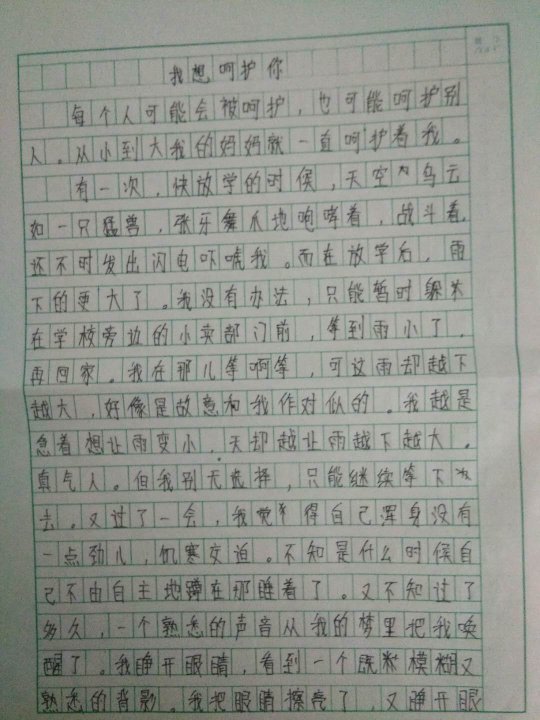 我想呵护你
每个人可能会被呵护，也可能呵护别
人。从小到大我的妈妈就一直呵护着我。
有一次，快放学的时候，天空乌云
如一只猛兽，张牙舞爪地咆哮着，战斗着，
还不时发出闪电吓唬我。而在放学后，雨
下的更大了。我没有办法，只能暂时躲
在学校旁边的小卖部门前，等到雨小了，
再回家。我在那儿等啊等，可这雨却越下
越大，好像是故意和我作对似的。我越是
急着想让雨变小，天却越让雨越下越大。
真气人。但我别无选择，只能继续等下
去。又过了一会，我觉得自己浑身没有
一点劲儿，饥寒交迫。不知是什么时候自
己不由自主地蹲在那睡着了。又不知过了
多久，一个熟悉的声音从我的梦里把我唤
醒了。我睁开眼睛，看到一个既模糊又
熟悉的背影。我把眼睛擦亮了，又睁开眼